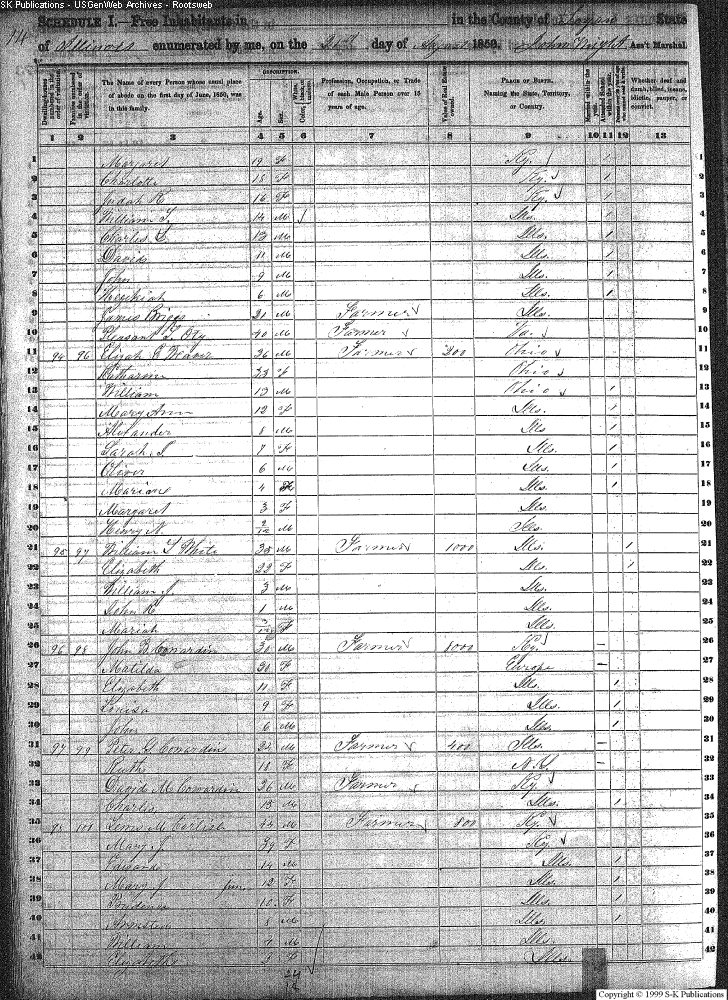 SK Publications - USGenWeb Archives - Rootsweb
SCHEDULE I.—Free Inhabitants in in the County of Logan State
of Illinois enumerated by me, on the day of August 1850. John Wright Ass't Marshal.
Dwelling-houses numbered in the order of visitation.
Families numbered in the order of visitation.
The Name of every Person whose usual place of abode on the first day of June, 1850, was in this family.
DESCRIPTION.
Age.
Sex.
Color, White, black, or mulatto.
Profession, Occupation, or Trade of each Male Person over 15 years of age.
Value of Real Estate owned.
PLACE OF BIRTH. Naming the State, Territory, or Country.
Married within the year.
Attended School within the year.
Persons over 20 y'rs of age who cannot read & write.
Whether deaf and dumb, blind, insane, idiotic, pauper, or convict.
1 2 3 4 5 6 7 8 9 10 11 12 13
1 Margaret 19 F Ky. / 1
2 Charlotte 18 F Ky. / 2
3 Judah K 16 F Ky. / 3
4 William T. 14 M Ills. / 4
5 Charles 13 M Ills. / 5
6 David 11 M Ills. / 6
7 John 9 M Ills. / 7
8 Hezekiah 6 M Ills. / 8
9 James Briggs 21 M Farmer Ills. 9
10 Pleasant L. 40 M Farmer Va. 10
11 94 96 Elijah Weaver 36 M Farmer 200 Ohio 11
12 Catharine 33 F Ohio 12
13 William 13 M Ohio / 13
14 Mary Ann 12 F Ills. / 14
15 Alexander 8 M Ills / 15
16 Sarah 7 F Ills. / 16
17 Oliver 6 M Ills. / 17
18 4 F Ills. / 18
19 Margaret 3 F Ills. 19
20 Henry 2/12 M Ills. 20
21 95 97 William T White 35 M Farmer 1000 Ills. / 21
22 Elizabeth 22 F Ills. / 22
23 William J. 3 M Ills. 23
24 John R 1 M Ills. 24
25 Mariah F Ills. 25
26 96 98 John B Cowardin 30 M Farmer 8000 Ky. – 26
27 Matilda 20 F Europe – 27
28 Elizabeth 11 F Ills. / 28
29 Louisa 9 F Ills. / 29
30 John 6 M Ills. / 30
31 97 99 Peter G Cowardin 24 M Farmer 400 Ills. – 31
32 Ruth 18 F N.Y. – 32
33 David M Cowardin 26 M Farmer Ky. 33
34 Charles 13 M Ills. / 34
35 98 100 M 43 M Farmer 800 Ky. 35
36 Mary J. 39 F Ky. 36
37 14 M Ills. / 37
38 Mary J. 12 F Ills. / 38
39 10 F Ills. / 39
40 8 M Ills. / 40
41 William 7 M Ills. 41
42 Elizabeth 5 F Ills. 42
Copyright © 1999 S-K Publications